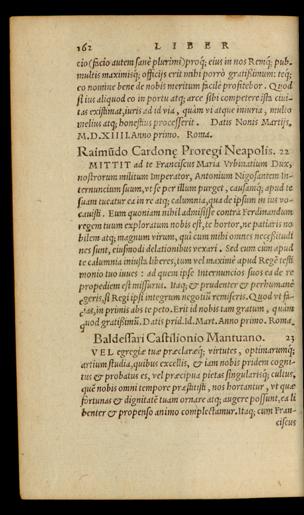 162 LIBER
cio (facio autem sanè plurimi) proq; eius in nos Remq́; pub.
multis maximisq; officijs erit mihi porrò gratissimum: teq;
eo nomine bene de nobis meritum facilè profitebor. Quod
si ius aliquod eo in portu atq; arce sibi competere ista ciui-
tas existimat, iuris ad id via, quàm vi atque iniuria, multo
melius atq; honestius processerit. Datis Nonis Martijs.
M.D.XIIII. Anno primo. Roma.
Raimũdo Cardonę Proregi Neapolis. 22
MITTIT ad te Franciscus Maria Vrbinatium Dux,
nostrorum militum Imperator, Antonium Nigosantem In-
ternuncium suum, vt se per illum purget, causamq́; apud te
suam tueatur ea in re atq; calumnia, qua de ipsum in ius vo-
causti. Eum quoniam nihil admisisse contrà Ferdinandum
regem tuum exploratum nobis est, te hortor, ne patiaris no
bilem atq; magnum virum, quì cum mihi omnes necessitudi
nes sunt, eiusmodi delationibus vexari. Sed cum eum apud
te calumnia iniusta liberes, tum vel maximè apud Regẽ testi
monio tuo iuues: ad quem ipse Internuncios suos ea de re
propediem est missurus. Itaq; & prudenter & perhumanè
egeris, si Regi ipsi integrum negotiũ remiseris. Quod vt fa-
cias, in primis abs te peto. Erit id nobis tam gratum, quàm
quod gratissimũ. Dat. prid. id. Mart. Anno primo. Roma.
Baldessari Castilionio Mantuano. 23
VEL egregiæ tuæ præclaræq́; virtutes, optimarumq́;
artium studia, quibus excellis, & iam nobis pridem cogni-
tus & probatus es, vel præcipua pietas singularisq́; cultus,
què nobis omni tempore præstitisti, nos hortantur, vt quæ
fortunas & dignitatẽ tuam ornare atq; augere possunt, ea li
benter & propenso animo complectamur. Itaq; cum Fran-
ciscus